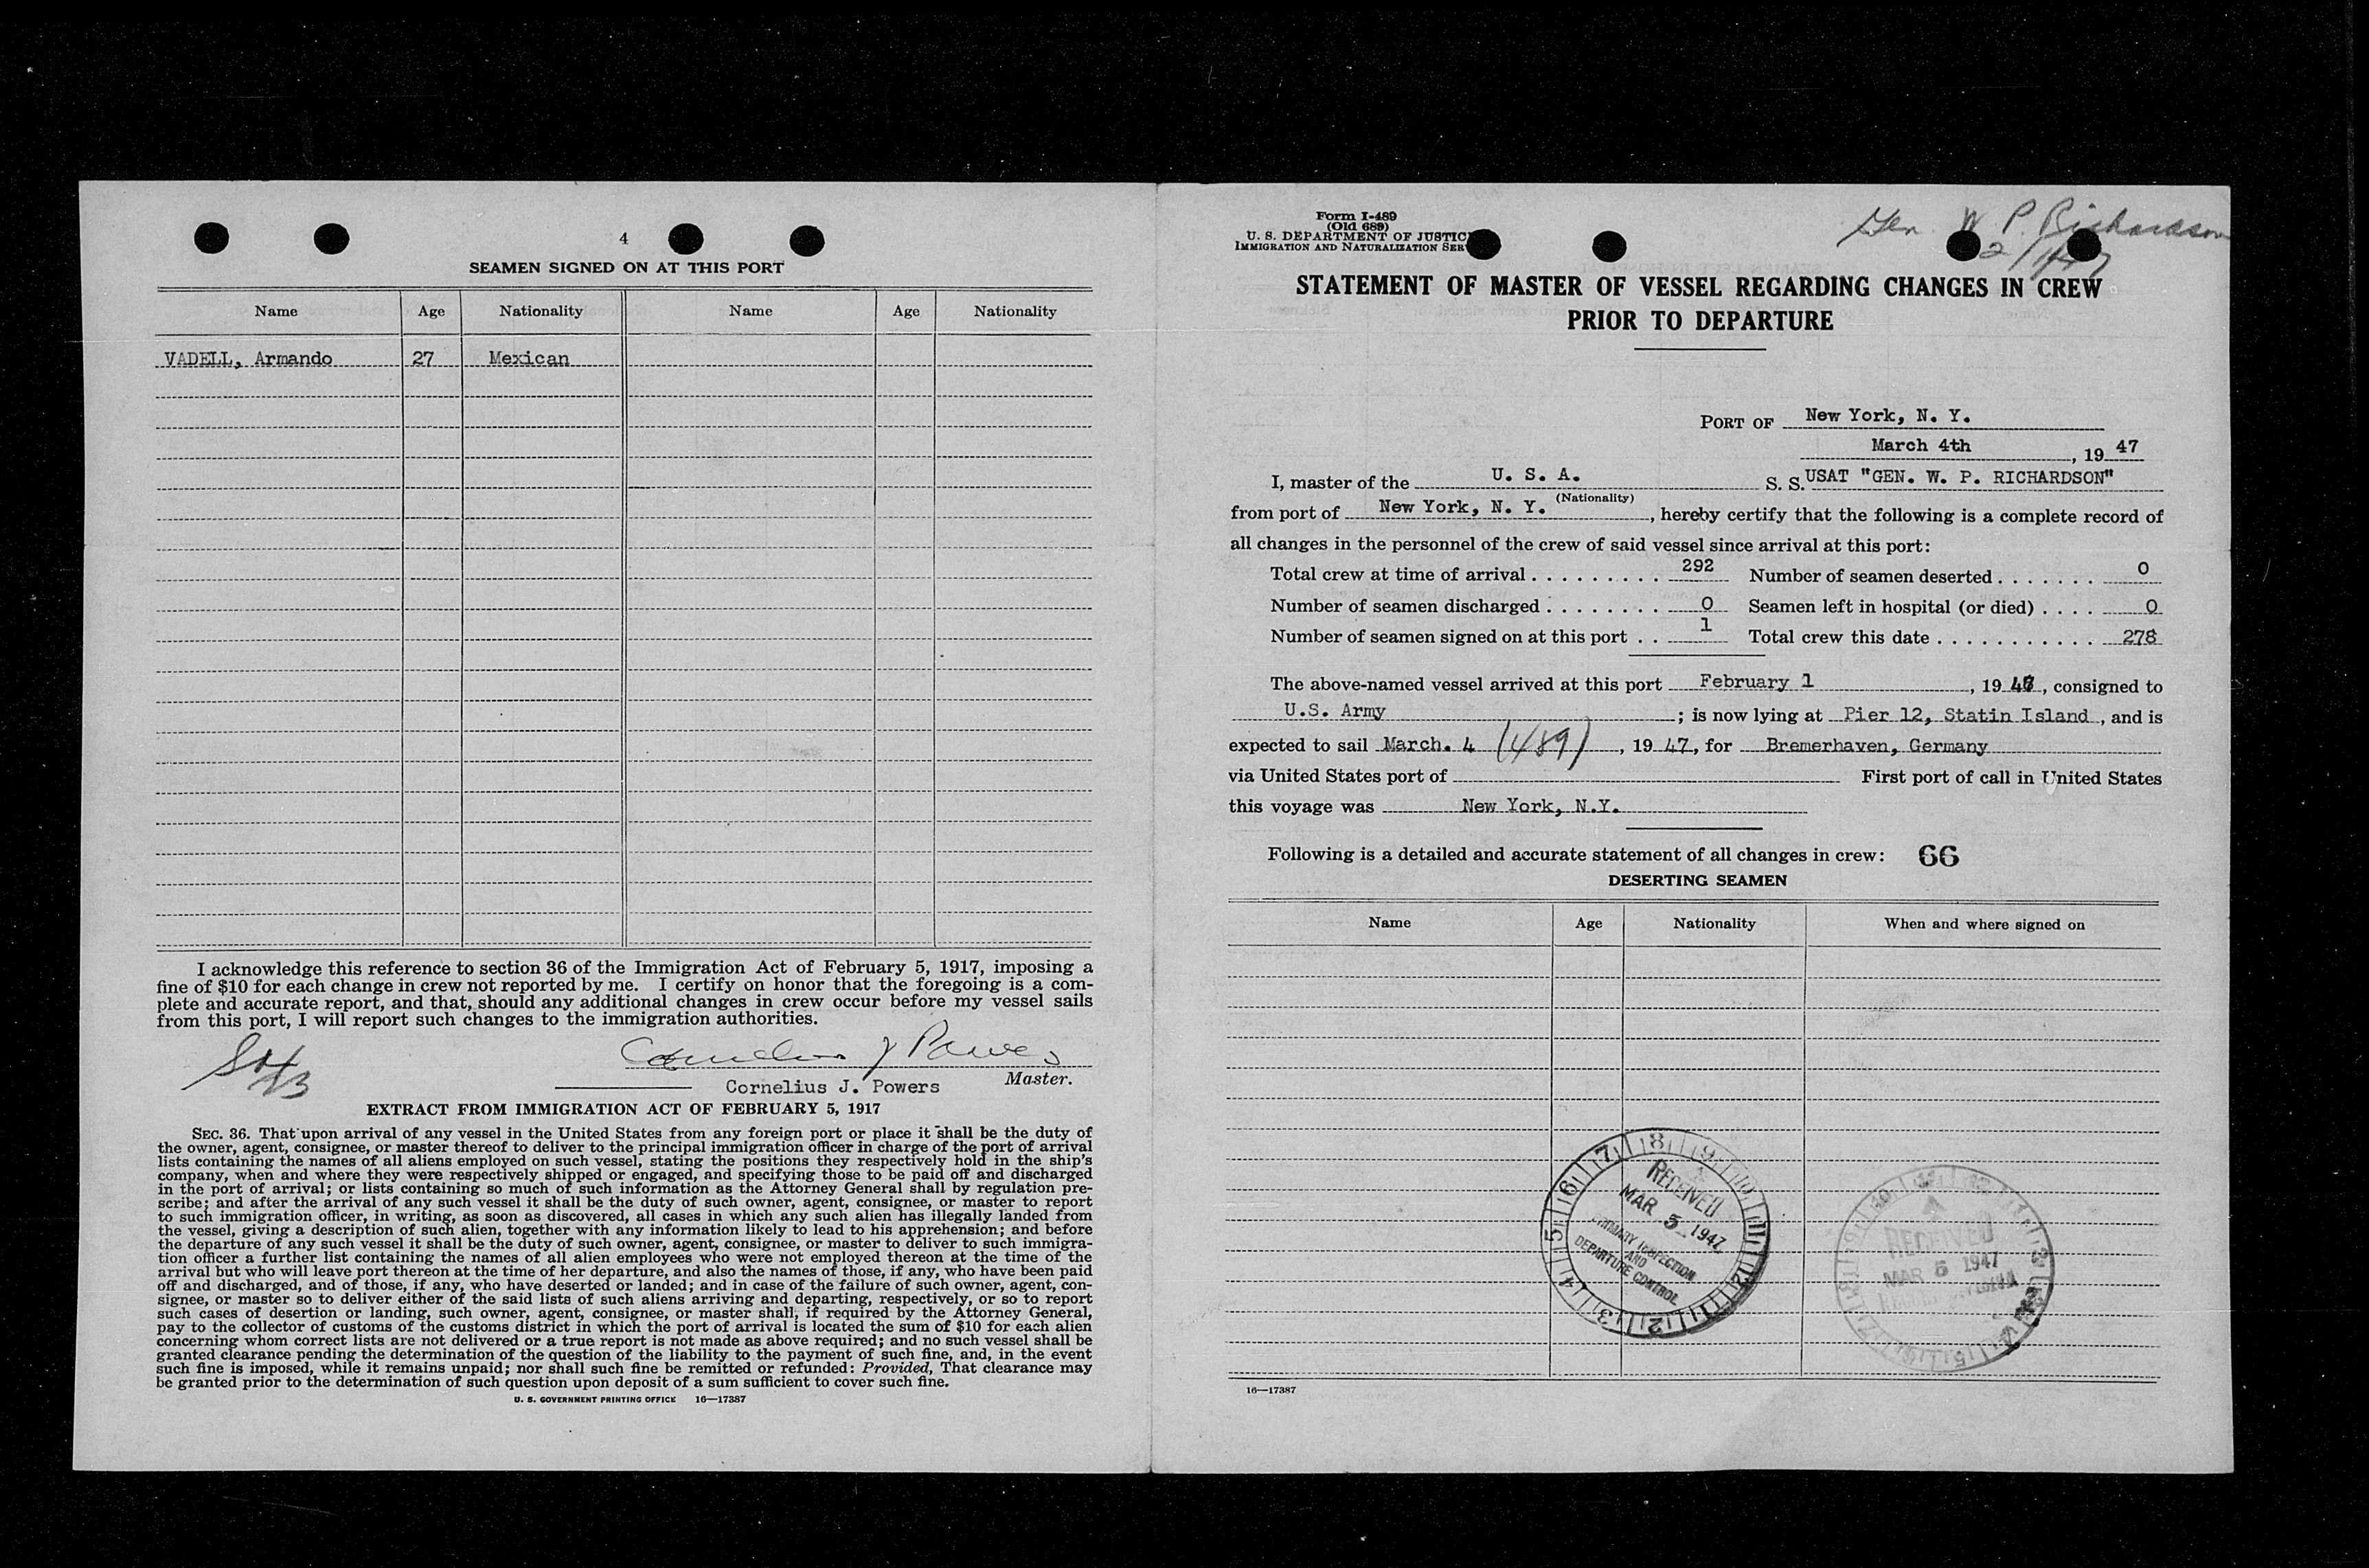 4
SEAMEN SIGNED ON AT THIS PORT
Name Age Nationality Name Age Nationality
VADELL, Armando 27 Mexican
I acknowledge this reference to section 36 of the Immigration Act of February 5, 1917, imposing a
fine of $10 for each change in crew not reported by me. I certify on honor that the foregoing is a com-
plete and accurate report, and that, should any additional changes in crew occur before my vessel sails
from this port, I will report such changes to the immigration authorities.
Cornelius J Powers
Cornelius J. Powers Master.
EXTRACT FROM IMMIGRATION ACT OF FEBRUARY 5, 1917
SEC. 36. That upon arrival of any vessel in the United States from any foreign port or place it shall be the duty of
the owner, agent, consignee, or master thereof to deliver to the principal immigration officer in charge of the port of arrival
lists containing the names of all aliens employed on such vessel, stating the positions they respectively hold in the ship's
company, when and where they were respectively shipped or engaged, and specifying those to be paid off and discharged
in the port of arrival; or lists containing so much of such information as the Attorney General shall by regulation pre-
scribe; and after the arrival of any such vessel it shall be the duty of such owner, agent, consignee, or master to report
to such immigration officer, in writing, as soon as discovered, all cases in which any such alien has illegally landed from
the vessel, giving a description of such alien, together with any information likely to lead to his apprehension; and before
the departure of any such vessel it shall be the duty of such owner, agent, consignee, or master to deliver to such immigra-
tion officer a further list containing the names of all alien employees who were not employed thereon at the time of the
arrival but who will leave port thereon at the time of her departure, and also the names of those, if any, who have been paid
off and discharged, and of those, if any, who have deserted or landed; and in case of the failure of such owner, agent, con-
signee, or master so to deliver either of the said lists of such aliens arriving and departing, respectively, or so to report
such cases of desertion or landing, such owner, agent, consignee, or master shall, if required by the Attorney General,
pay to the collector of customs of the customs district in which the port of arrival is located the sum of $10 for each alien
concerning whom correct lists are not delivered or a true report is not made as above required; and no such vessel shall be
granted clearance pending the determination of the question of the liability to the payment of such fine, and, in the event
such fine is imposed, while it remains unpaid; nor shall such fine be remitted or refunded: Provided, That clearance may
be granted prior to the determination of such question upon deposit of a sum sufficient to cover such fine.
U. S. GOVERNMENT PRINTING OFFICE 16—17387
Form I-489
(Old 689)
U. S. DEPARTMENT OF JUSTIC
IMMIGRATION AND NATURALIZATION SER
Gen W P. Richardson
STATEMENT OF MASTER OF VESSEL REGARDING CHANGES IN CREW
PRIOR TO DEPARTURE
PORT OF New York, N. Y.
March 4th, 19 47
I, master of the U. S. A. S. S. USAT "GEN. W. P. RICHARDSON"
(Nationality)
from port of New York, N. Y., hereby certify that the following is a complete record of
all changes in the personnel of the crew of said vessel since arrival at this port:
Total crew at time of arrival . . . . . . . . . 292 Number of seamen deserted . . . . . . . 0
Number of seamen discharged . . . . . . . . 0 Seamen left in hospital (or died) . . . . 0
Number of seamen signed on at this port . . 1 Total crew this date . . . . . . . . . . . 278
The above-named vessel arrived at this port February 1, 19 47, consigned to
U.S. Army; is now lying at Pier 12, Statin Island, and is
expected to sail March. 4 (489), 19 47, for Bremerhaven, Germany
via United States port of First port of call in United States
this voyage was New York, N.Y.
Following is a detailed and accurate statement of all changes in crew: 66
DESERTING SEAMEN
Name Age Nationality When and where signed on
RECEIVED
MAR 5 1947
PRIMARY INSPECTION
AND
DEPARTURE CONTROL
RECEIVED
MAR 6 1947
16—17387